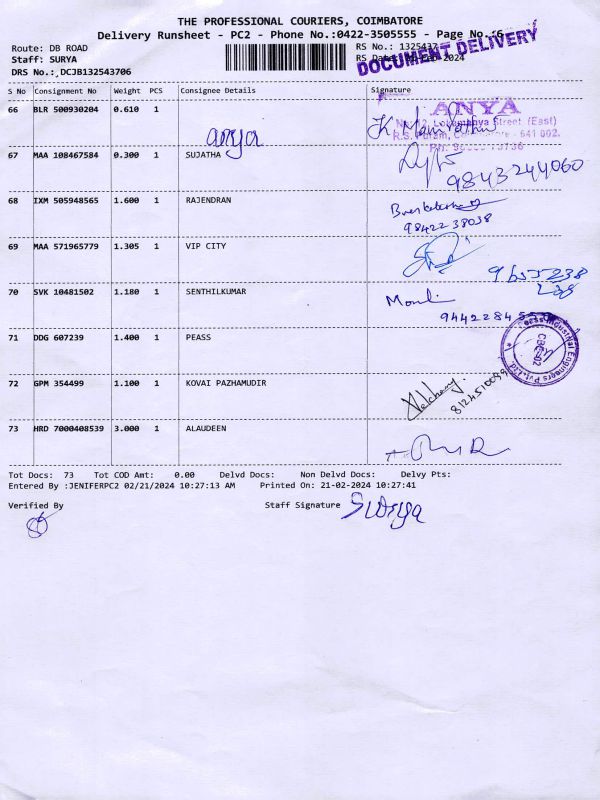 THE PROFESSIONAL COURIERS, COIMBATORE
Delivery Runsheet - PC2 - Phone No.:0422-3505555 - Page No.:6
Route: DB ROAD
Staff: SURYA
DRS No.: DCJB132543706
RS No.: 1325437
RS Date: -Feb-2024
DOCUMENT DELIVERY
S No Consignment No Weight PCS Consignee Details Signature
66 BLR 500930204 0.610 1 anya
ANYA
Street (East)
R.S. Puram, - 641 002.
67 MAA 108467584 0.300 1 SUJATHA 9843244060
68 IXM 505948565 1.600 1 RAJENDRAN
9842238038
69 MAA 571965779 1.305 1 VIP CITY 9655238
238
70 SVK 10481502 1.180 1 SENTHILKUMAR Mouli
9442284
71 DDG 607239 1.400 1 PEASS
Industrial Engineers Pvt. Ltd.
72 GPM 354499 1.100 1 KOVAI PAZHAMUDIR
8124510099
73 HRD 7000408539 3.000 1 ALAUDEEN
Tot Docs: 73 Tot COD Amt: 0.00 Delvd Docs: Non Delvd Docs: Delvy Pts:
Entered By :JENIFERPC2 02/21/2024 10:27:13 AM Printed On: 21-02-2024 10:27:41
Verified By Staff Signature Surya